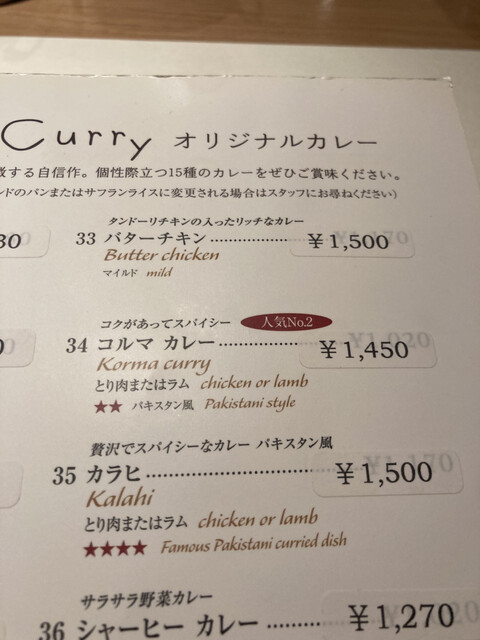 Curry オリジナルカレー
する自信作。個性際立つ15種のカレーをぜひご賞味ください。
ンドのパンまたはサフランライスに変更される場合はスタッフにお尋ねください)
タンドーリチキンの入ったリッチなカレー
33 バターチキン ¥1,500
Butter chicken
マイルド mild
コクがあってスパイシー 人気No.2
34 コルマ カレー ¥1,450
Korma curry
とり肉またはラム chicken or lamb
★★ パキスタン風 Pakistani style
贅沢でスパイシーなカレー パキスタン風
35 カラヒ ¥1,500
Kalahi
とり肉またはラム chicken or lamb
★★★★ Famous Pakistani curried dish
サラサラ野菜カレー
36 シャーヒー カレー ¥1,270